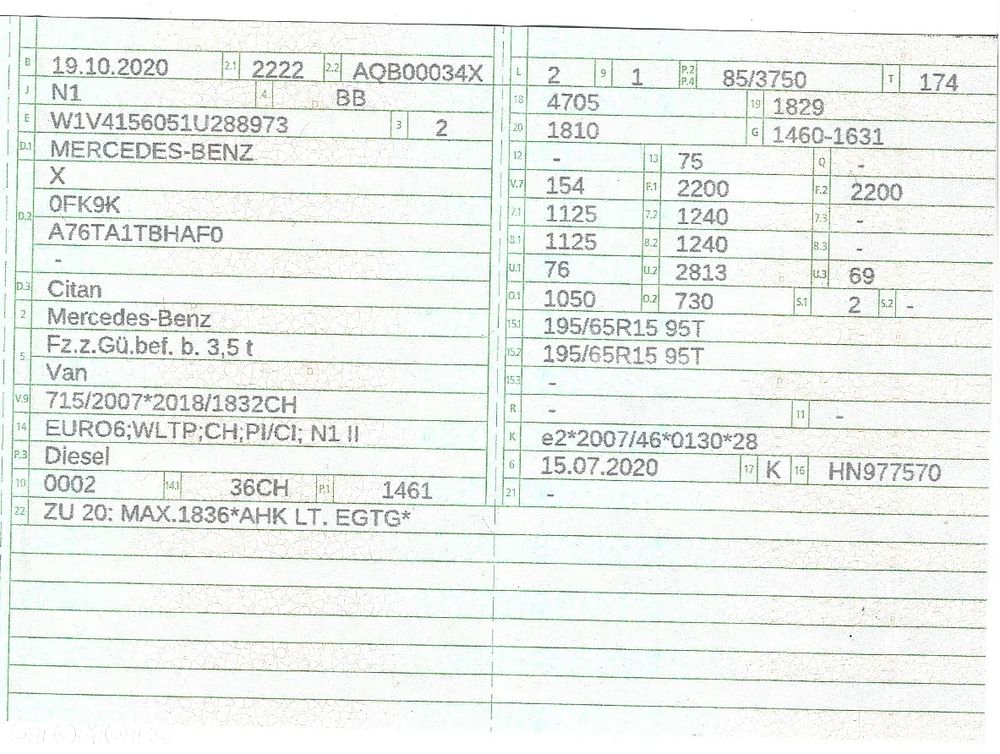 B 19.10.2020 2.1 2222 2.2 AQB00034X
J N1 4 BB
E W1V4156051U288973 3 2
D.1 MERCEDES-BENZ
X
D.2 0FK9K
A76TA1TBHAF0
-
D.3 Citan
2 Mercedes-Benz
5 Fz.z.Gü.bef. b. 3,5 t
Van
V.9 715/2007*2018/1832CH
14 EURO6;WLTP;CH;PI/CI; N1 II
P.3 Diesel
10 0002 14.1 36CH P.1 1461
22 ZU 20: MAX.1836*AHK LT. EGTG*
L 2 9 1 P.2 P.4 85/3750 T 174
18 4705 19 1829
20 1810 G 1460-1631
12 - 13 75 Q -
V.7 154 F.1 2200 F.2 2200
7.1 1125 7.2 1240 7.3 -
8.1 1125 8.2 1240 8.3 -
U.1 76 U.2 2813 U.3 69
O.1 1050 O.2 730 S.1 2 S.2 -
15.1 195/65R15 95T
15.2 195/65R15 95T
15.3 -
R - 11 -
K e2*2007/46*0130*28
6 15.07.2020 17 K 16 HN977570
21 -